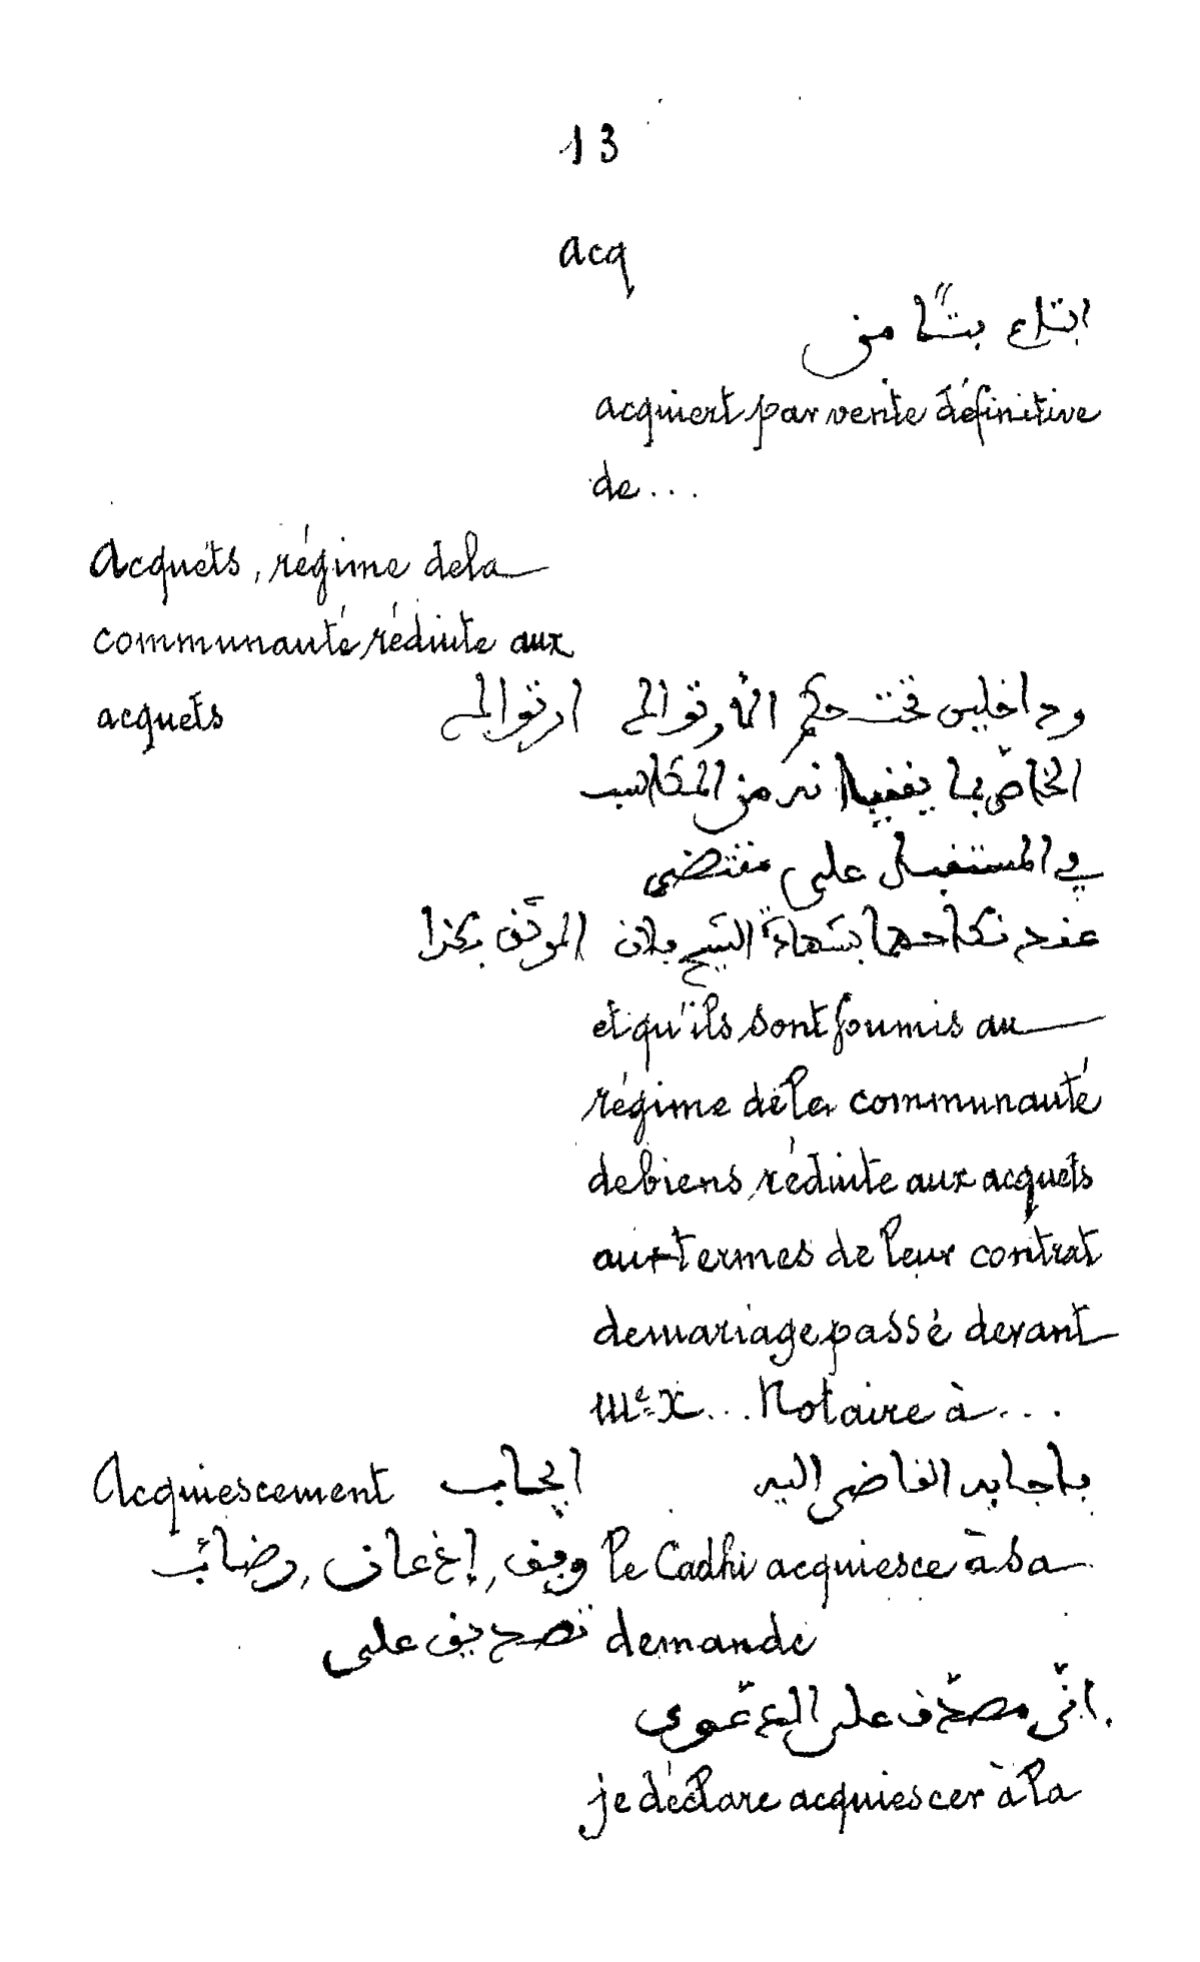 13
acq
ابتاع بتًّا من
acquiert par vente définitive
de...
Acquêts, régime de la
communauté réduite aux
acquêts
وداخلين تحت حكم
الخاصّ بما من المكاسب
في المستقبل على مقتضى
عقد نكاحهما بشهادة الشيخ فلان الموثّق بكذا
et qu'ils sont soumis au
régime de la communauté
de biens réduite aux acquêts
aux termes de leur contrat
de mariage passé devant
Me X... Notaire à...
Acquiescement ايجاب
باجابه القاضي اليه
le Cadhi acquiesce à sa
إذعان, رضائب
demande
تصديق على
انّي مصدّق على الدعوى
je déclare acquiescer à la